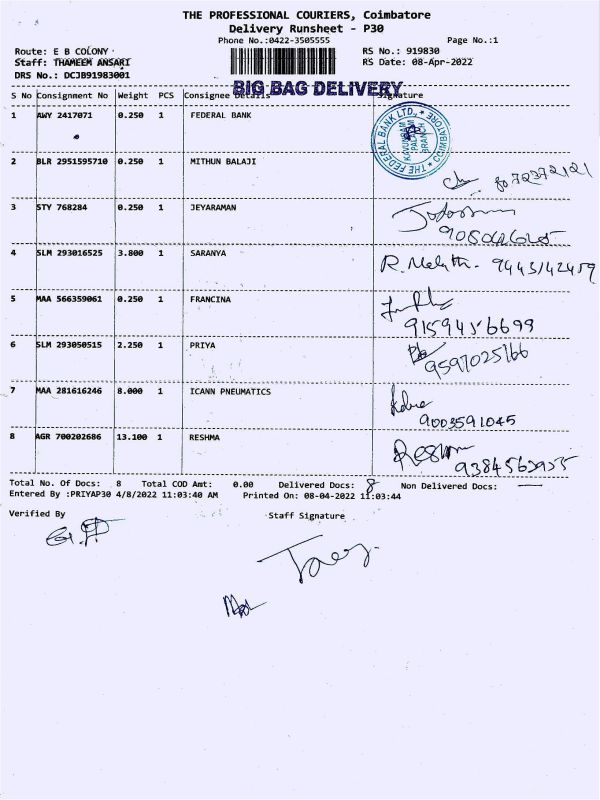 THE PROFESSIONAL COURIERS, Coimbatore
Delivery Runsheet - P30
Phone No.:0422-3505555 Page No.:1
Route: E B COLONY RS No.: 919830
Staff: THAMEEM ANSARI RS Date: 08-Apr-2022
DRS No.: DCJB91983001
BIG BAG DELIVERY
S No Consignment No Weight PCS Consignee Details Signature
1 AWY 2417071 0.250 1 FEDERAL BANK
THE FEDERAL BANK LTD., COIMBATORE
KAVUNDAM PALAYAM BRANCH
2 BLR 2951595710 0.250 1 MITHUN BALAJI
3 STY 768284 0.250 1 JEYARAMAN
4 SLM 293016525 3.800 1 SARANYA
9443142459
5 MAA 566359061 0.250 1 FRANCINA
9159456699
6 SLM 293050515 2.250 1 PRIYA
9597025166
7 MAA 281616246 8.000 1 ICANN PNEUMATICS
9003591045
8 AGR 700202686 13.100 1 RESHMA
Total No. Of Docs: 8 Total COD Amt: 0.00 Delivered Docs: 8 Non Delivered Docs: —
Entered By :PRIYAP30 4/8/2022 11:03:40 AM Printed On: 08-04-2022 11:03:44
Verified By Staff Signature